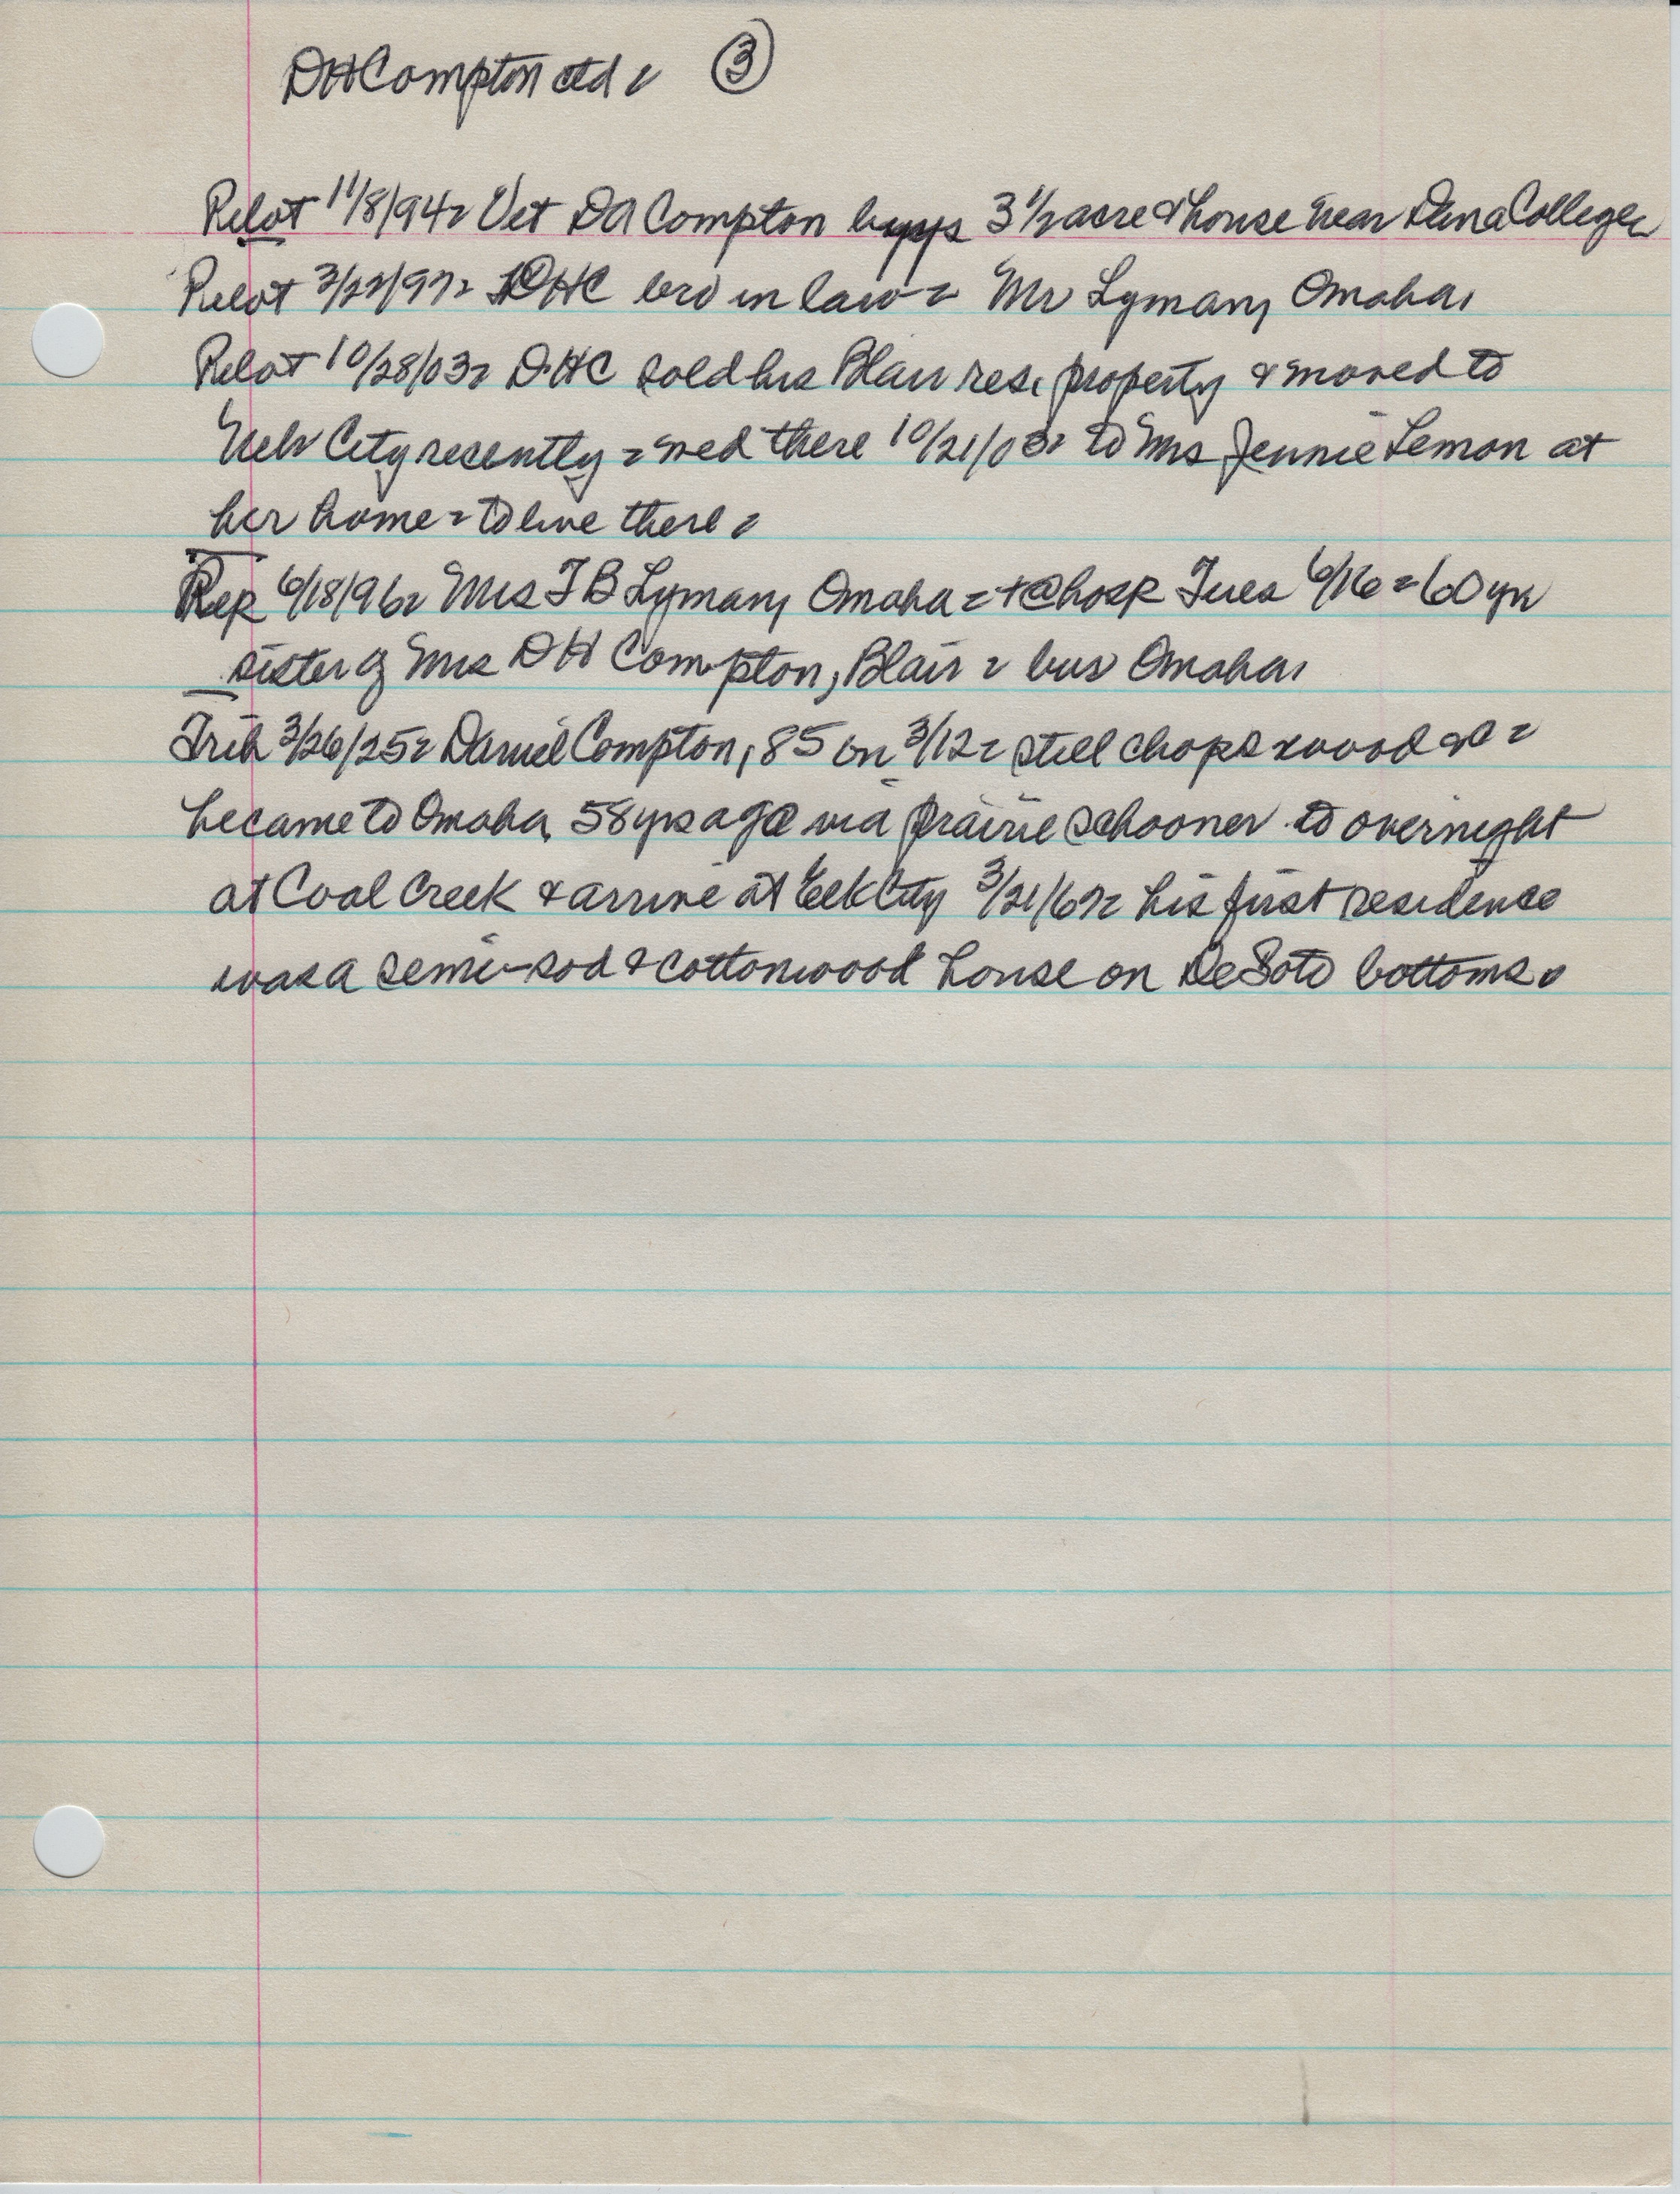 DH Compton ctd = ③
Pilot 11/8/94= Vet DH Compton buys 3 1/2 acre & house near Dana College
Pilot 3/22/97= DHC bro in law = Mr Lyman, Omaha.
Pilot 10/28/03= DHC sold his Blair res. property & moved to
Neb City recently = med there 10/21/03= to Mrs Jennie Lemon at
her home = to live there =
Rep 6/18/96= Mrs F B Lyman, Omaha = +@hosp Tues 6/16 = 60 yrs
sister of Mrs DH Compton, Blair = bur Omaha.
Trib 3/26/25= Daniel Compton, 85 on 3/12 = still chops wood =
he came to Omaha 58 yrs ago via prairie schooner to overnight
at Coal Creek & arrive at Elk City 3/21/67= his first residence
was a semi-sod & cottonwood house on DeSoto bottoms.